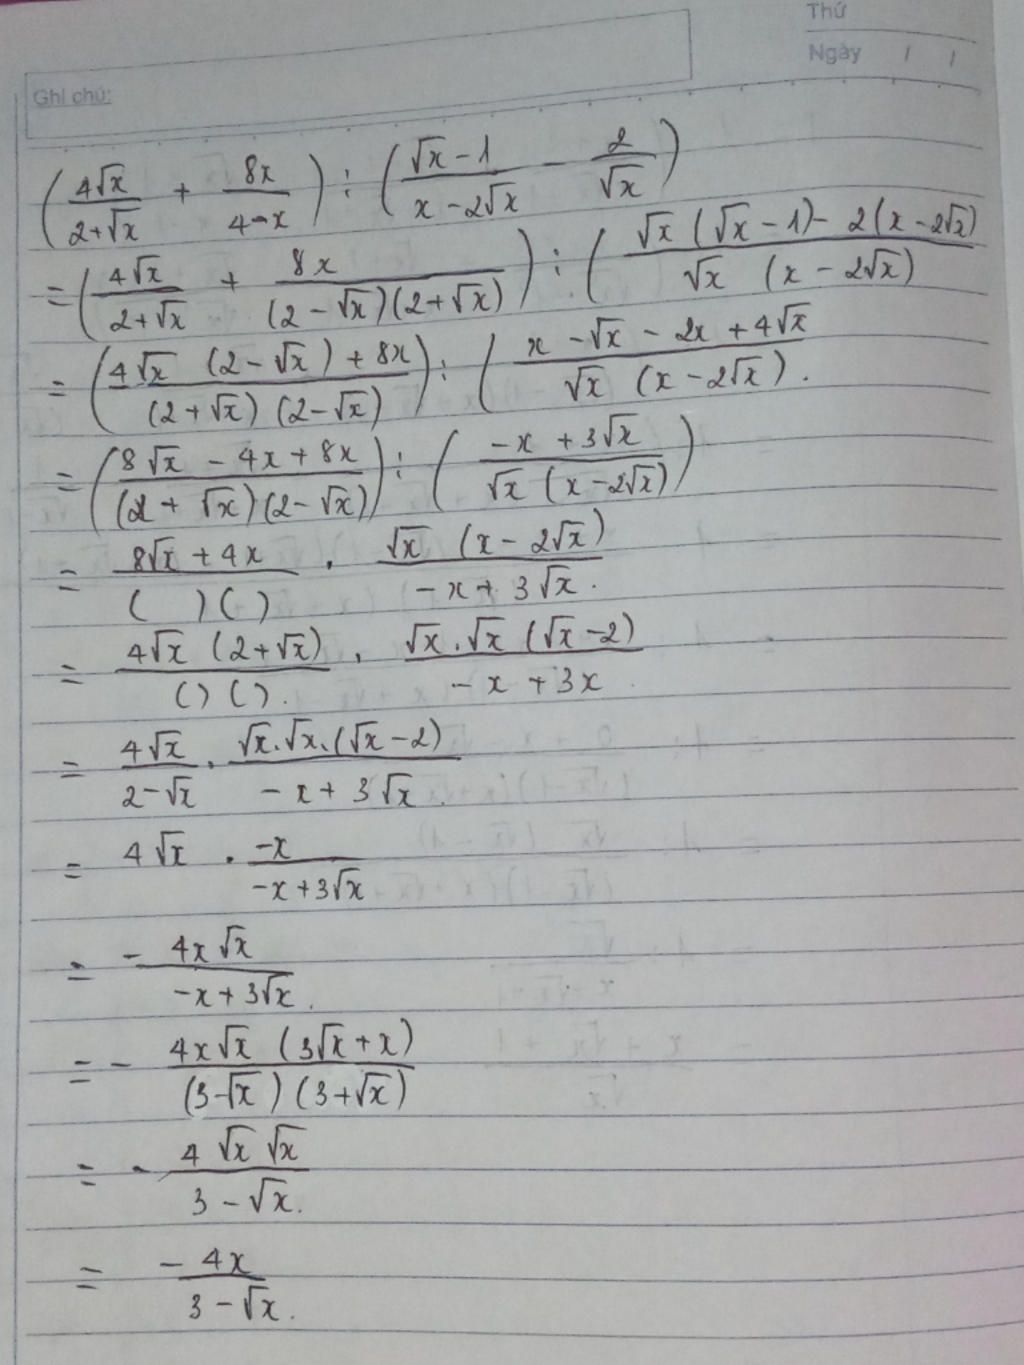 Thứ
Ngày / /
Ghi chú:
(4√x/(2+√x) + 8x/(4-x)) : ((√x-1)/(x-2√x) - 2/√x)
= (4√x/(2+√x) + 8x/((2-√x)(2+√x))) : ((√x(√x-1)-2(x-2√x))/(√x(x-2√x))
= ((4√x(2-√x)+8x)/((2+√x)(2-√x))) : ((x-√x-2x+4√x)/(√x(x-2√x)).
= ((8√x-4x+8x)/((2+√x)(2-√x))) : ((-x+3√x)/(√x(x-2√x)))
= (8√x+4x)/(( )( )) . (√x(x-2√x))/(-x+3√x).
= (4√x(2+√x))/(()()). . (√x.√x(√x-2))/(-x+3x)
= 4√x/(2-√x) . (√x.√x.(√x-2))/(-x+3√x).
= 4√x . -x/(-x+3√x)
= - 4x√x/(-x+3√x).
= - (4x√x(3√x+x))/((3-√x)(3+√x))
= - (4√x√x)/(3-√x).
= -4x/(3-√x).